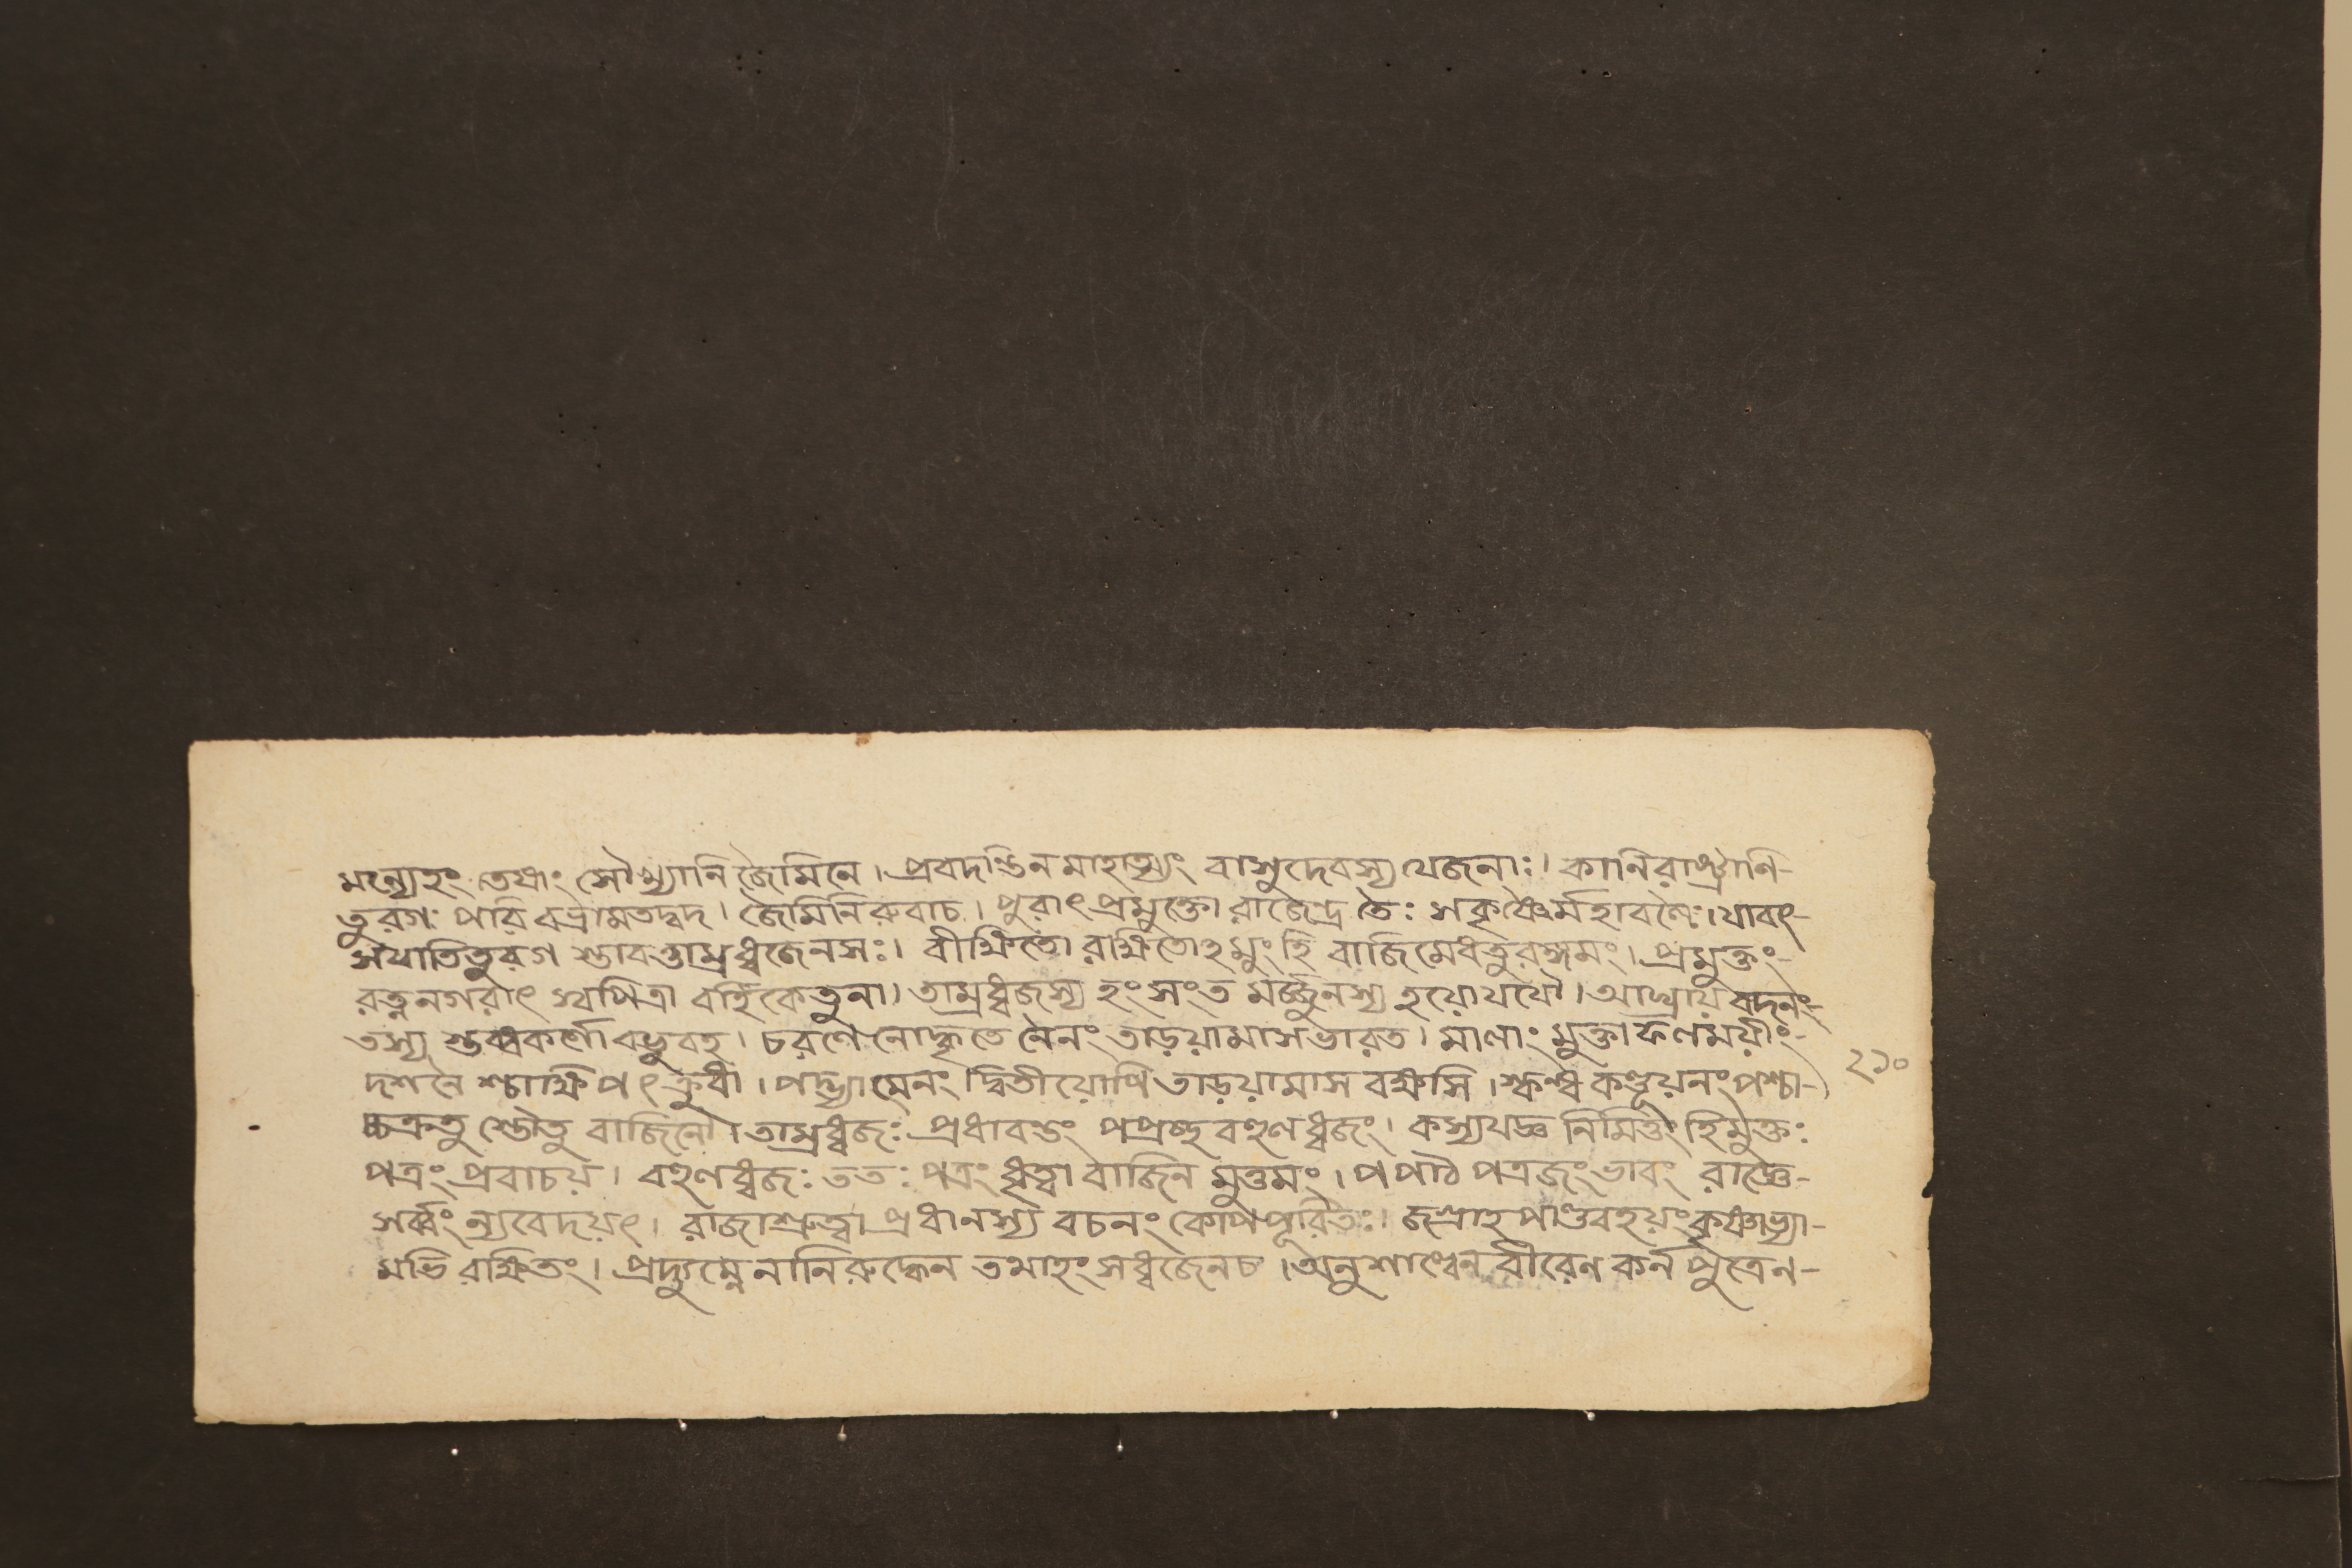 মন্যেহং তেষাং সৌখ্যানি জৈমিনে। প্রবদন্তিন মাহাত্ম্যং বাসুদেবস্য যেজনাঃ। কানি রাষ্ট্রাণি-
তুরগঃ পরি বভ্রামতদ্বদ। জৈমিনি রুবাচ। পুরাৎ প্রমুক্তো রাজেন্দ্র তৈঃ সকৃষ্ণৈর্মহাবলৈঃ। যাবৎ-
সযাতিতুরগ স্তাবত্তাম্রধ্বজেনসঃ। বীক্ষিতো রক্ষিতোহমুং হি বাজিমেধতুরঙ্গমং। প্রমুক্তং-
রত্ননগরাৎ স্বপিত্রা বর্হিকেতুনা। তাম্রধ্বজস্য হংসংত মর্জ্জুনস্য হয়োযযৌ। আঘ্রায় বদনং-
তস্য স্তব্ধকর্ণো বভুবহ। চরণে নোদ্ধৃতে নৈনং তাড়য়ামাসভারত। মালাং মুক্তাফলময়ীং-
দশনৈ শ্চাক্ষিপৎ ক্রুধী। পদ্ভ্যামেনং দ্বিতীয়োপি তাড়য়ামাস বক্ষসি। স্কন্ধ কণ্ডূয়নং পশ্চা-
চ্চক্রতু স্তৌতু বাজিনৌ। তাম্রধ্বজঃ প্রধাবন্তং পপ্রচ্ছ বহুলধ্বজং। কস্যযজ্ঞ নিমিত্তং হিমুক্তঃ
পত্রং প্রবাচয়। বহুলধ্বজঃ ততঃ পত্রং ধৃত্বা বাজিন মুত্তমং। পপাঠ পত্রজং ভাবং রাজ্ঞে-
সর্ব্বং ন্যবেদয়ৎ। রাজাশ্রুত্বা প্রধানস্য বচনং কোপপূরিতঃ। জগ্রাহ পাণ্ডবহয়ং কৃষ্ণাভ্যা-
মভি রক্ষিতং। প্রদ্যুম্নে নানিরুদ্ধেন তমাহংসধ্বজেনচ। অনুশাল্বেন বীরেণ কর্ন পুত্রেন-
২১০